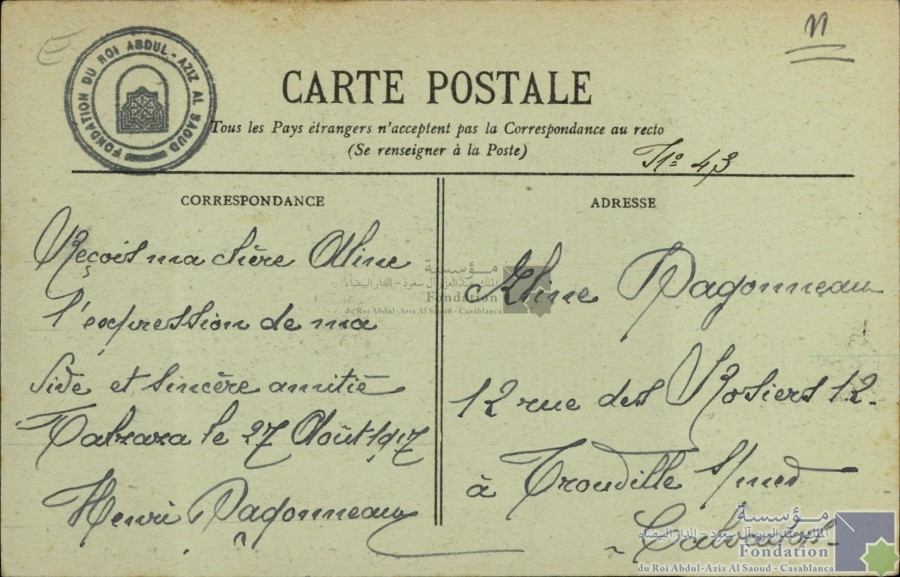 n
FONDATION DU ROI ABDUL-AZIZ AL SAOUD
CARTE POSTALE
Tous les Pays étrangers n'acceptent pas la Correspondance au recto
(Se renseigner à la Poste)
N° 43
CORRESPONDANCE
Reçois ma chère Aline
l'expression de ma
et sincère amitié
le 27 Août 1917
Henri Pagonneau
ADRESSE
Pagonneau
12 rue des Rosiers 12
à Trouville s/mer
Calvados
مؤسسة
الملك عبد العزيز آل سعود - الدار البيضاء
Fondation
du Roi Abdul-Aziz Al Saoud - Casablanca
مؤسسة
الملك عبد العزيز آل سعود - الدار البيضاء
Fondation
du Roi Abdul-Aziz Al Saoud - Casablanca